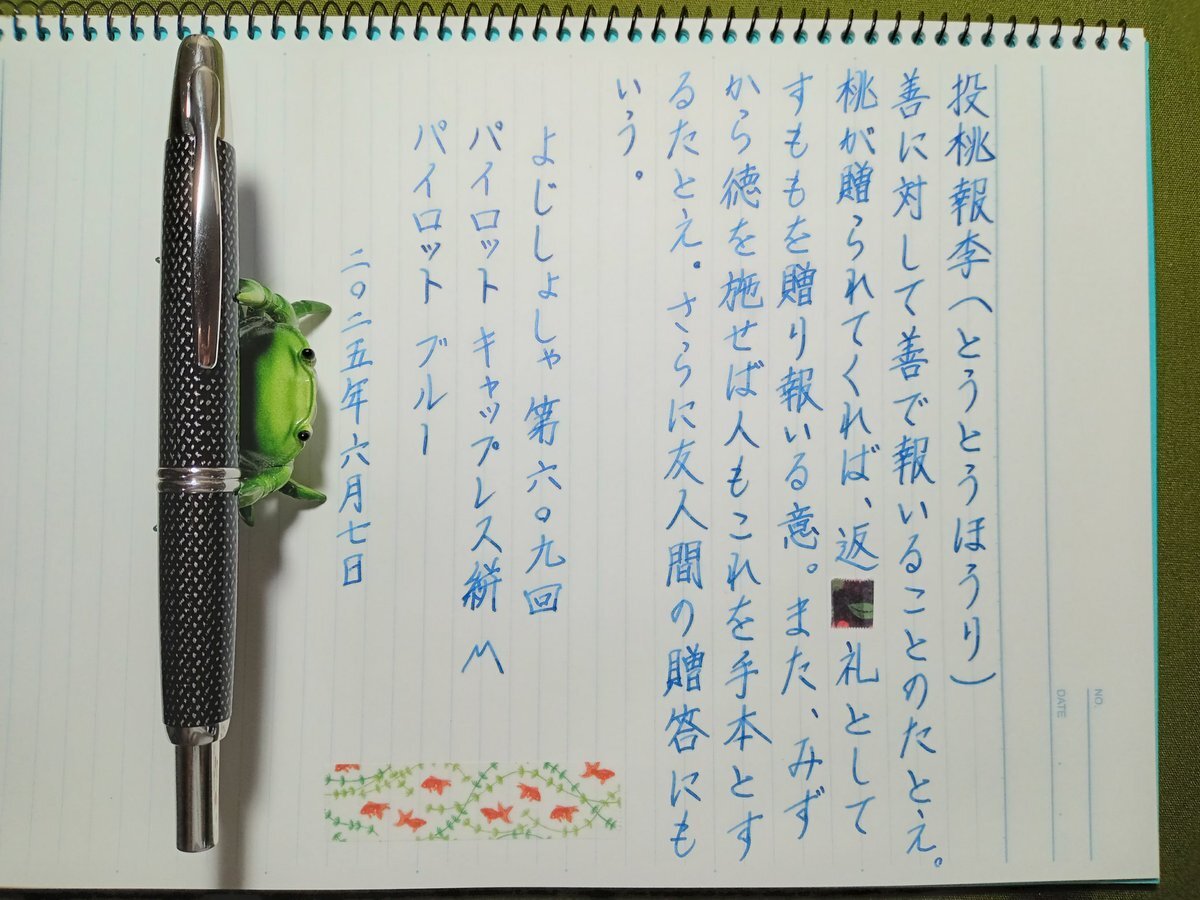 投桃報李(とうとうほうり)
善に対して善で報いることのたとえ。
桃が贈られてくれば、返礼として
すももを贈り報いる意。また、みず
から徳を施せば人もこれを手本とす
るたとえ。さらに友人間の贈答にも
いう。
よじしょしゃ 第六〇九回
パイロット キャップレス絣 M
パイロット ブルー
二〇二五年六月七日
NO.
DATE